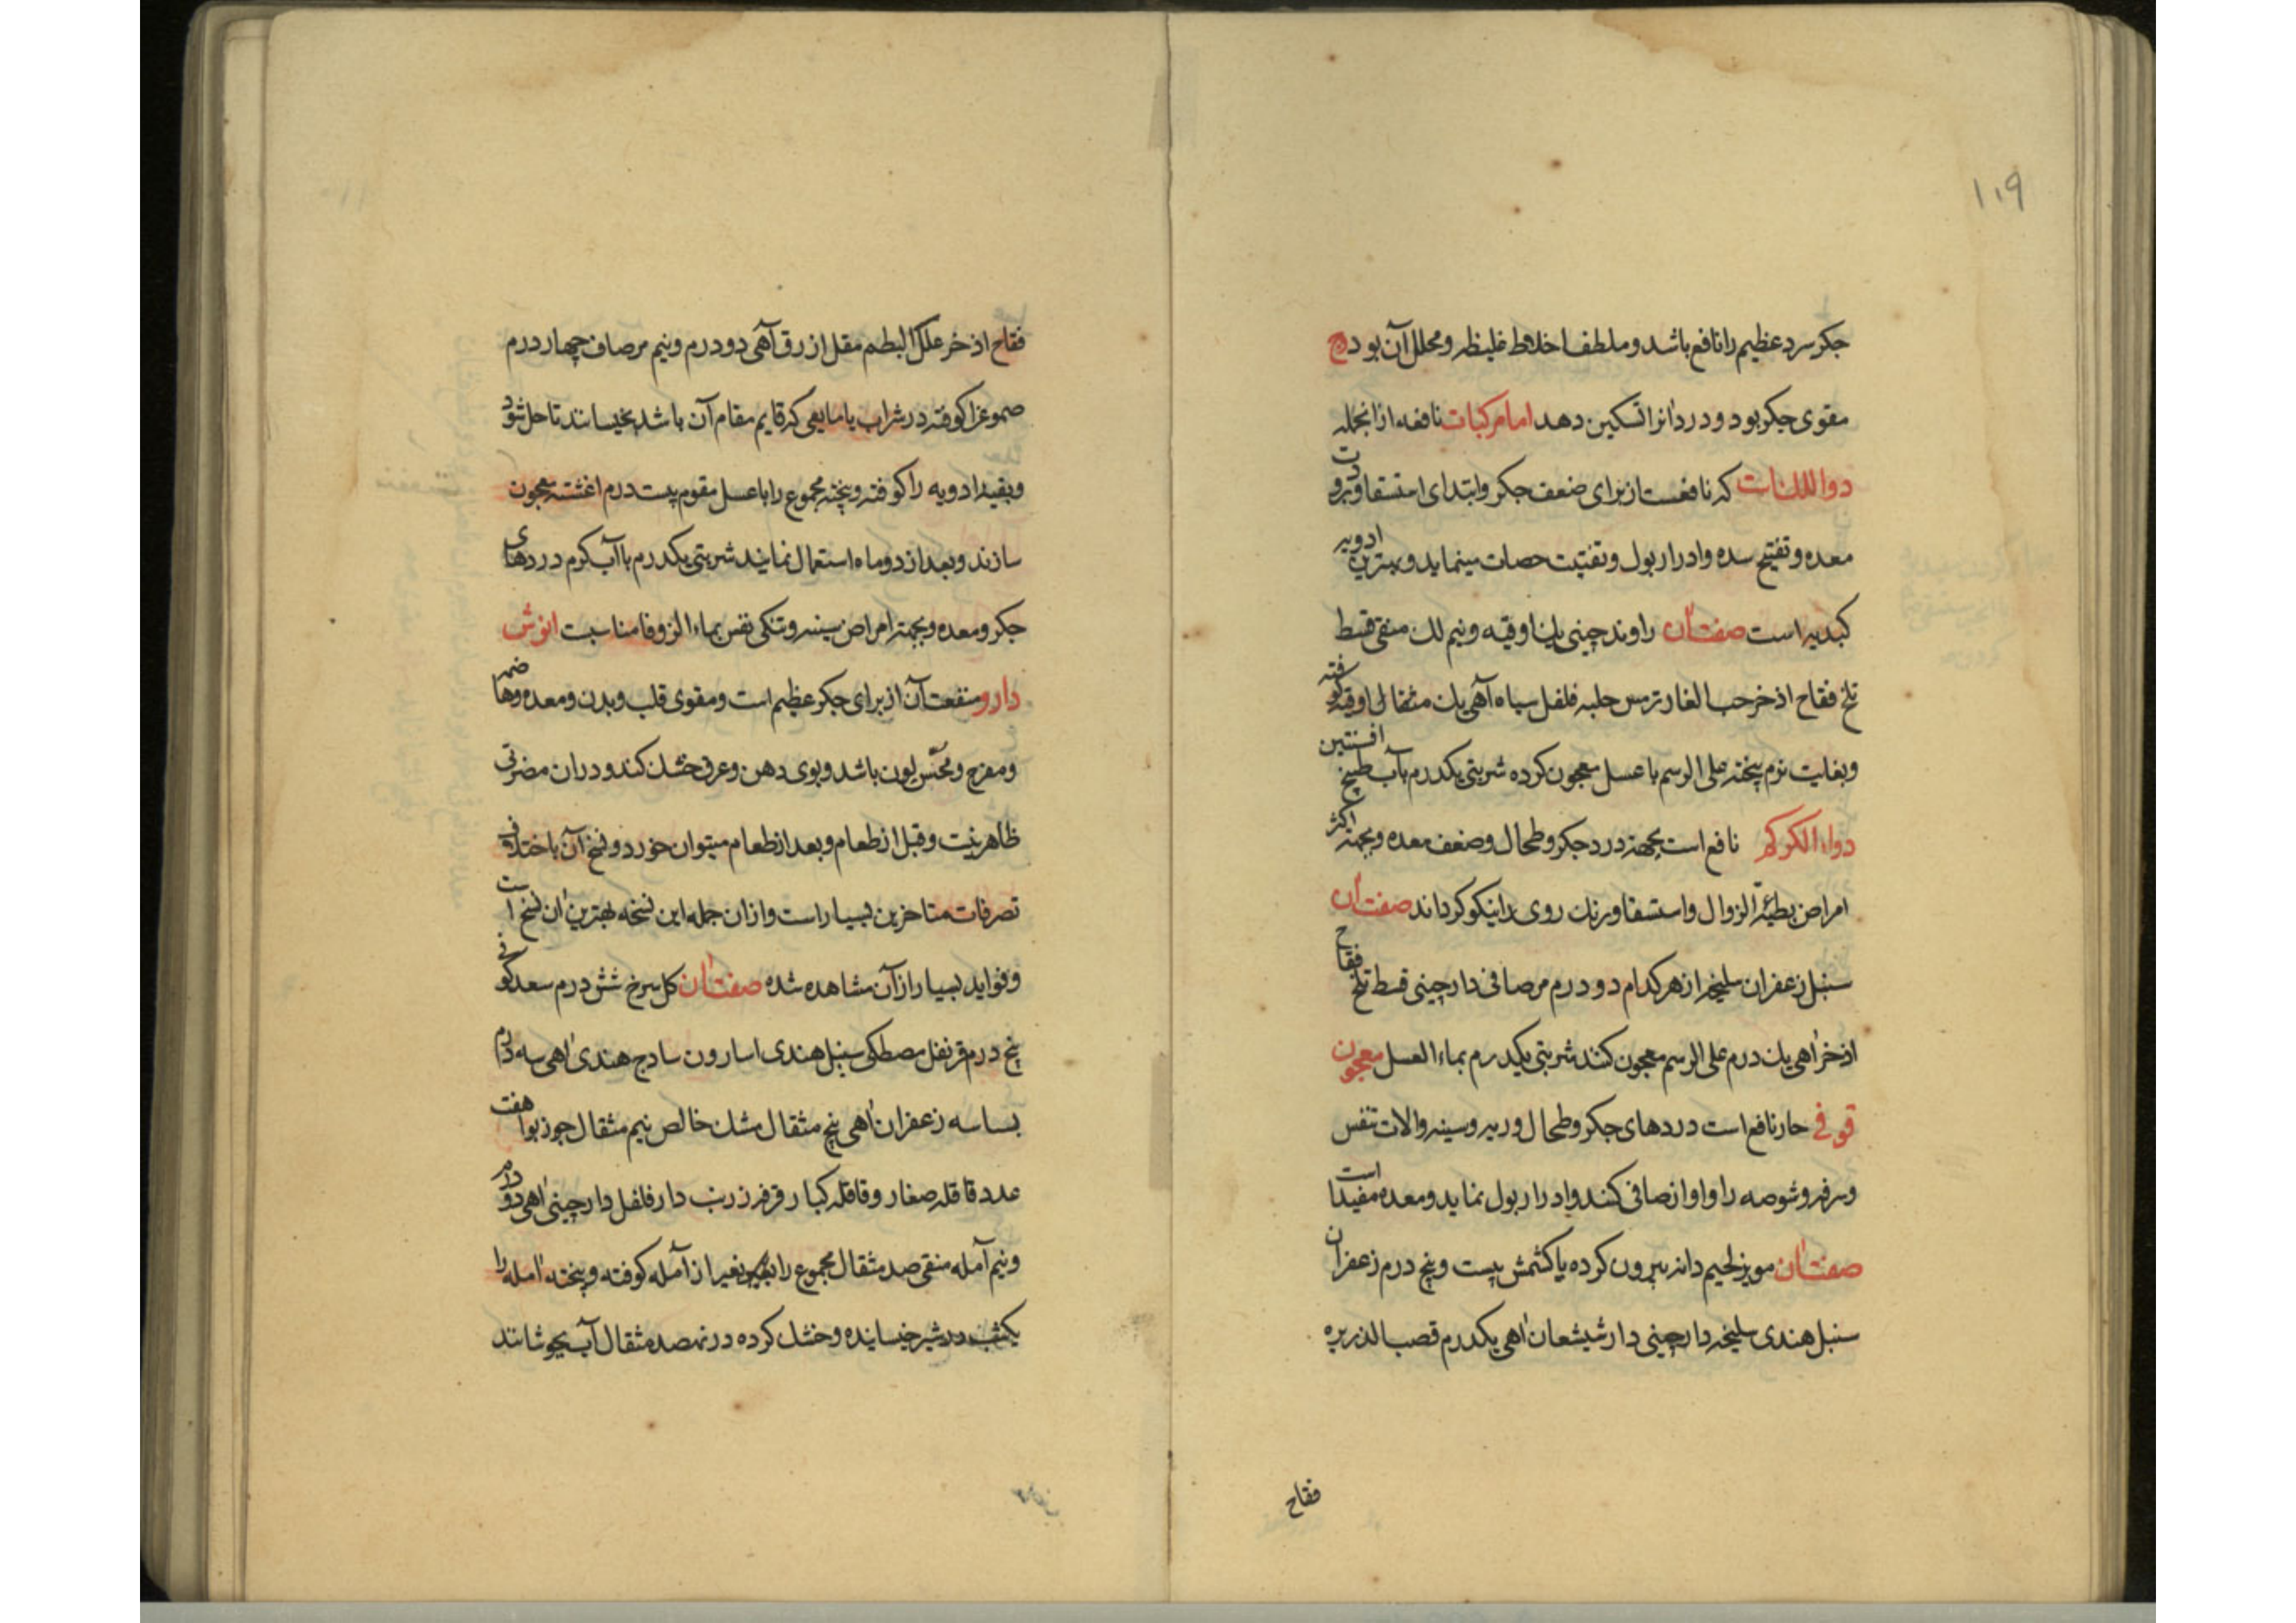 ۱۰۹
جکر سرد عظیم را نافع باشد و ملطف اخلاط غلیظه و محلل آن بود و
مقوی جکر بود و درد انرا تسکین دهد اما مرکبات نافعه ازانجمله
دوا اللک که نافعست از برای ضعف جکر و ابتدای استسقا و برودت
معده و تفتیح سده و ادرار بول و تفتیت حصات مینماید و بهترین ادویه
کبدیه است صفت آن راوند چینی یک اوقیه و نیم لک منقی قسط
تلخ فقاح اذخر حب الغار ترمس حلبه فلفل سیاه آهی یک مثقالی اوقیه کوفته
و بغایت نرم پخته علی الرسم با عسل معجون کرده شربتی یکدرم بآب طبیخ افسنتین
دواء الکرکم نافع است بجهة درد جکر و طحال و ضعف معده و بجهة اکثر
امراض بطیئة الزوال و استسقا و رنک روی را نیکو کرداند صفت آن
سنبل زعفران سلیخه از هر کدام دو درم مر صافی دارچینی قسط تلخ فقاح
اذخر اهی یک درم علی الرسم معجون کنند شربتی یکدرم بماء العسل معجون
قوفی حار نافع است دردهای جکر و طحال و ریه و سینه و الات تنفس
و سرفه و شوصه را و اواز صافی کند و ادرار بول نماید و معده مفید است
صفت آن مویز لحیم دانه بیرون کرده یا کشمش بیست و پنج درم زعفران
سنبل هندی سلیخه دارچینی دارشیشعان اهی یکدرم قصب الذریره
فقاح
فقاح اذخر علک البطم مقل ازرق آهی دو درم و نیم مر صاف چهار درم
صموغ را کوفته در شراب یا مایعی که قایم مقام آن باشد بخیسانند تا حل شود
و بقیه ادویه را کوفته و پخته مجموع را با عسل مقوم بیست درم اغشته معجون
سازند و بعد از دو ماه استعمال نمایند شربتی یکدرم با آب کرم دردهای
جکر و معده و بجهة امراض سینه و تنکی نفس بماء الزوفا مناسبت انوش
دارو منفعت آن از برای جکر عظیم است و مقوی قلب و بدن و معده و هاضمه
و مفرح و محسن لون باشد و بوی دهن و عرق خشک کند و دران مضرتی
ظاهر نیست و قبل از طعام و بعد از طعام میتوان خورد و نسخ آن باختلاف
تصرفات متاخرین بسیار است و ازان جمله این نسخه بهترین ان نسخ است
و فواید بسیار از آن مشاهده شده صفت آن کل سرخ شش درم سعد کوفی
پنج درم قرنفل مصطکی سنبل هندی اسارون سادج هندی اهی سه درم
بساسه زعفران اهی پنج مثقال مشک خالص نیم مثقال جوز بوا هفت
عدد قاقله صغار و قاقله کبار قرفه زرنب دارفلفل دارچینی اهی دو درم
و نیم آمله منقی صد مثقال مجموع را بغیر از آمله کوفته و پخته امله را
یکشب در شیر خیسانیده و خشک کرده در نهصد مثقال آب بجوشانند